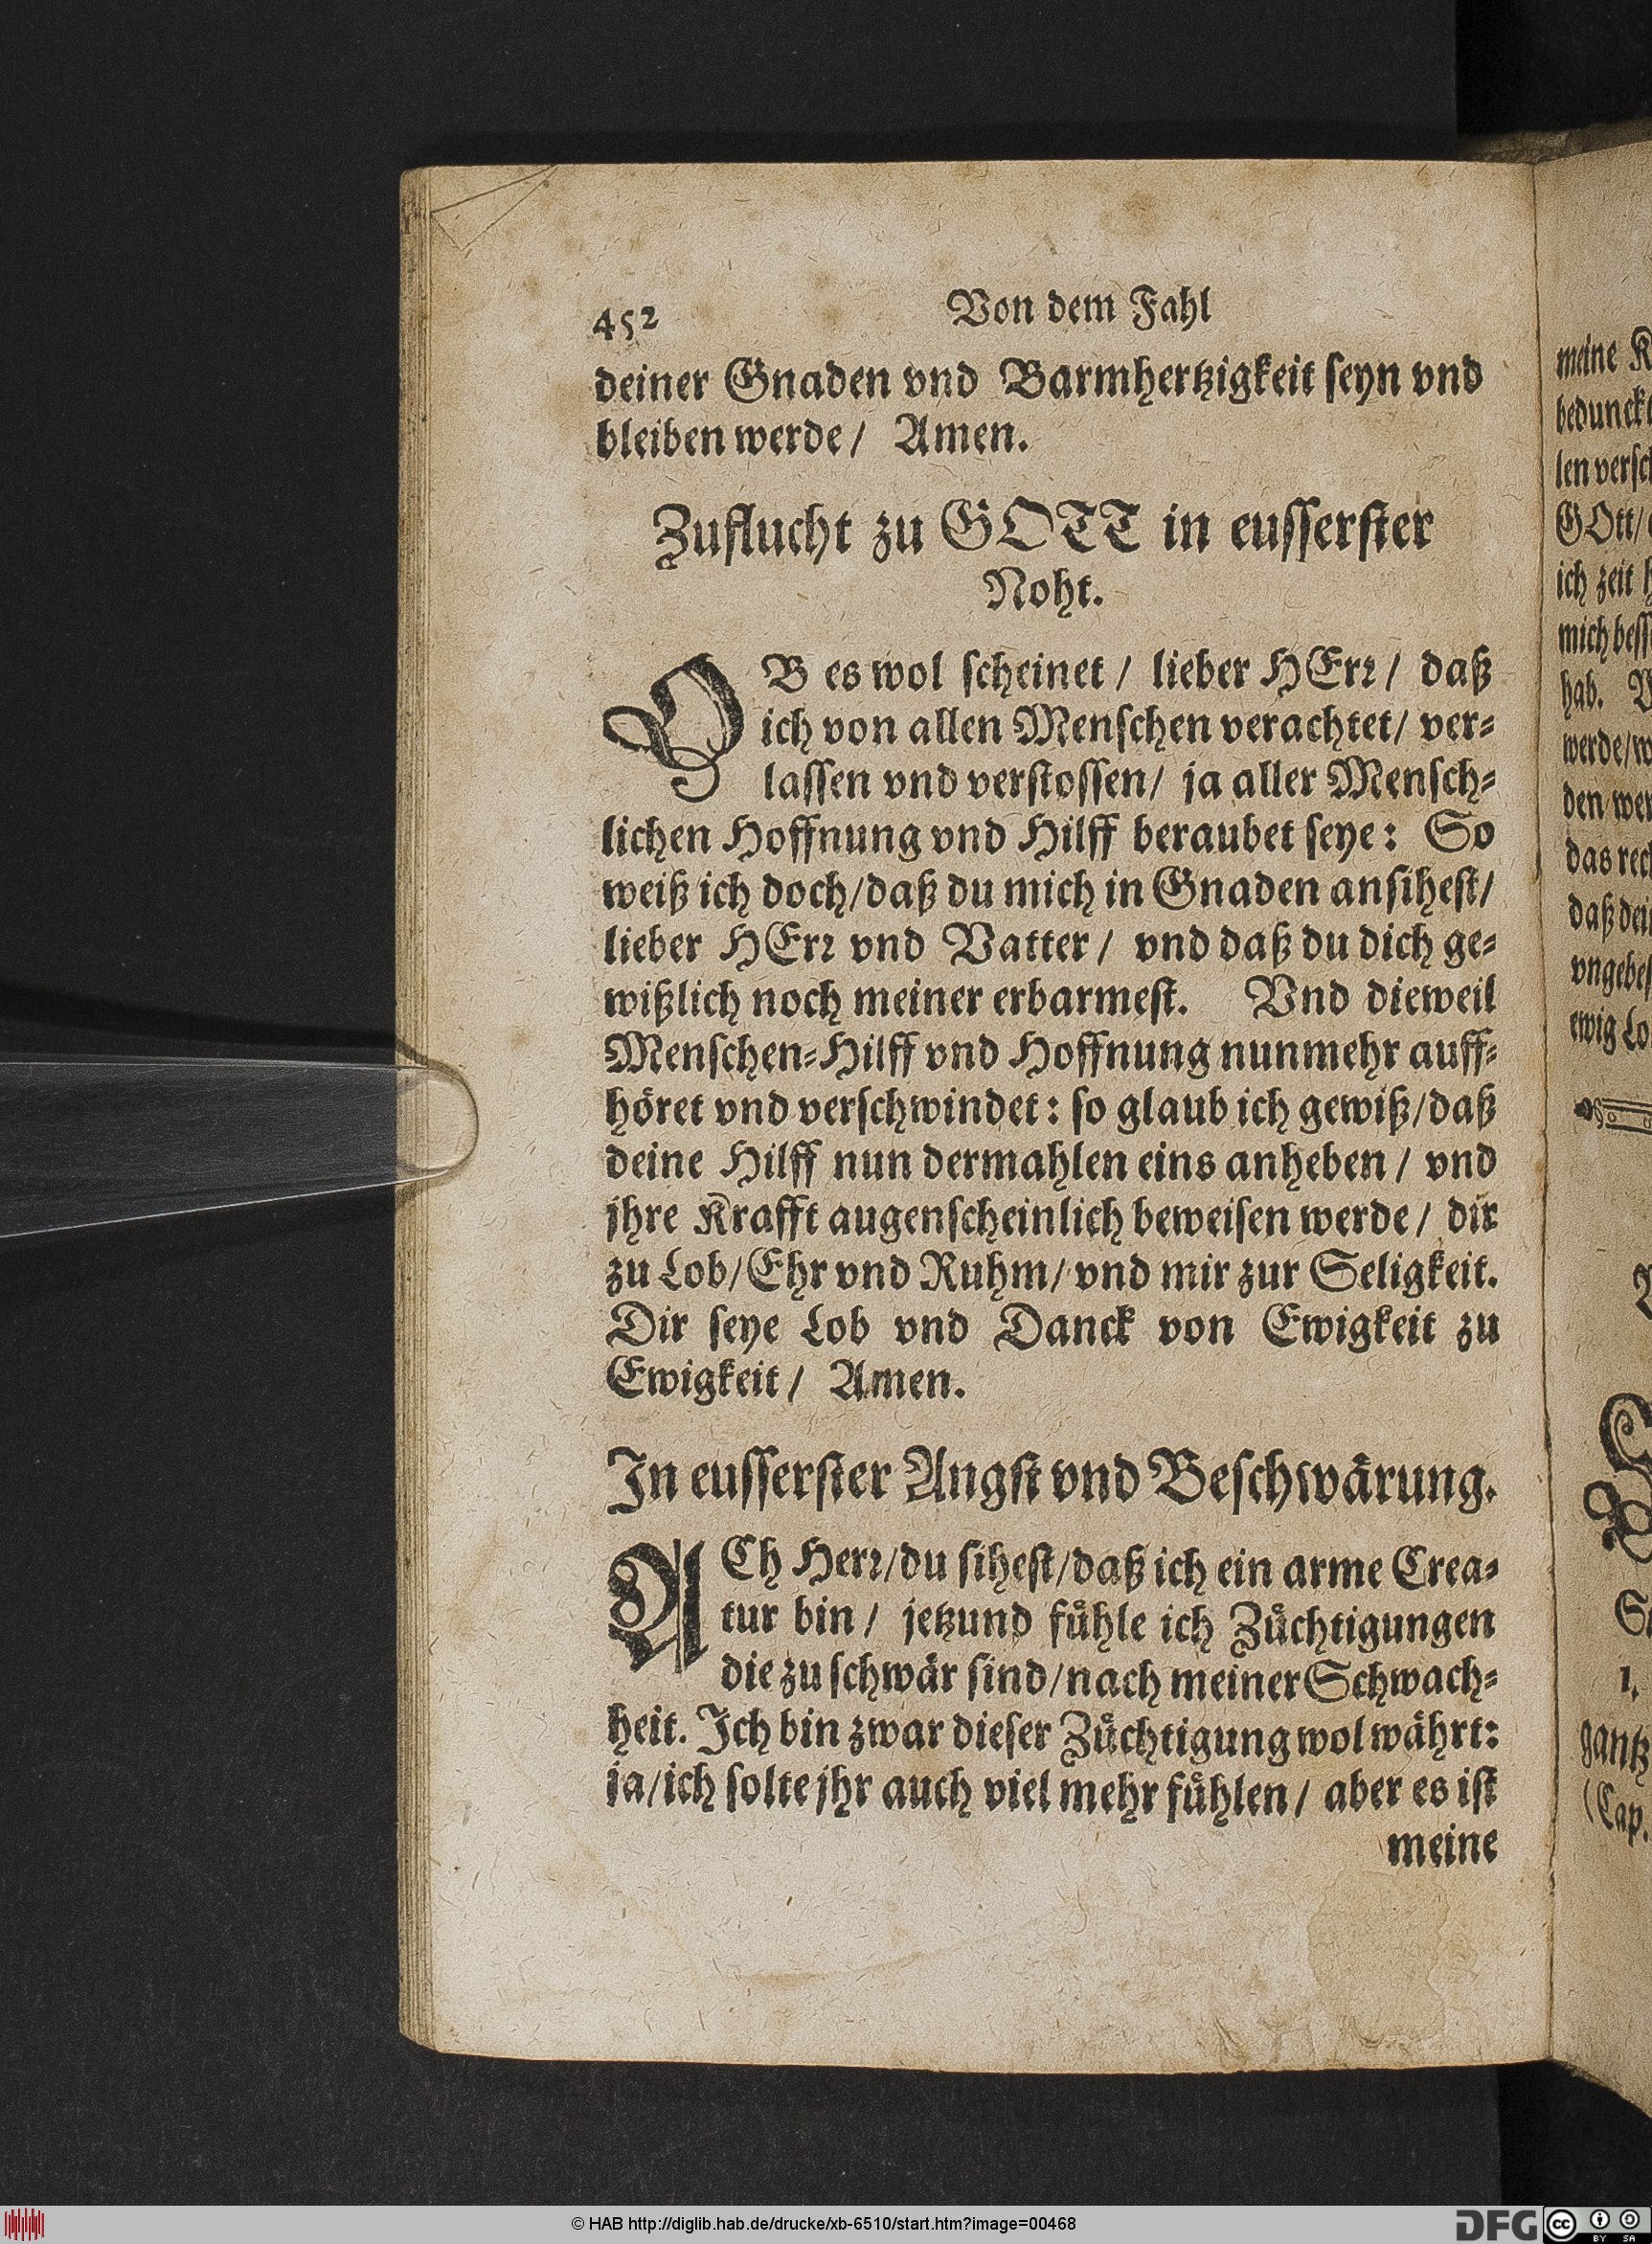 452 Von dem Fahl
deiner Gnaden vnd Barmhertzigkeit seyn vnd
bleiben werde / Amen.
Zuflucht zu GOTT in eusserster
Noht.
OB es wol scheinet / lieber HErꝛ / daß
ich von allen Menschen verachtet / ver-
lassen vnd verstossen / ja aller Mensch-
lichen Hoffnung vnd Hilff beraubet seye: So
weiß ich doch / daß du mich in Gnaden ansihest /
lieber HErꝛ vnd Vatter / vnd daß du dich ge-
wißlich noch meiner erbarmest. Vnd dieweil
Menschen-Hilff vnd Hoffnung nunmehr auff-
höret vnd verschwindet: so glaub ich gewiß / daß
deine Hilff nun dermahlen eins anheben / vnd
jhre Krafft augenscheinlich beweisen werde / dir
zu Lob / Ehr vnd Ruhm / vnd mir zur Seligkeit.
Dir seye Lob vnd Danck von Ewigkeit zu
Ewigkeit / Amen.
In eusserster Angst vnd Beschwärung.
ACh Herꝛ / du sihest / daß ich ein arme Crea-
tur bin / jetzund fühle ich Züchtigungen
die zu schwär sind / nach meiner Schwach-
heit. Ich bin zwar dieser Züchtigung wol währt:
ja / ich solte jhr auch viel mehr fühlen / aber es ist
meine
meine
GOtt /
ich zeit
hab.
werde /
daß
ewig
1.
gantz
(Cap.
© HAB http://diglib.hab.de/drucke/xb-6510/start.htm?image=00468
DFG
cc
BY SA